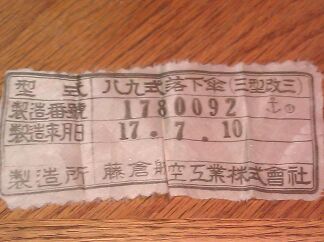 型式 八九式落下傘(三型改三)
製造番號 1780092
製造年月日 17.7.10
製造所 藤倉航空工業株式會社